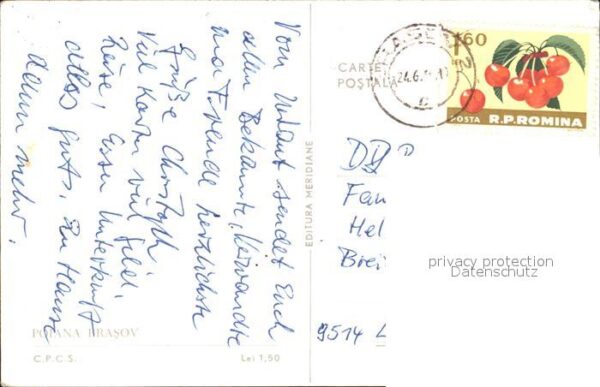 Vom Urlaub sendet Euch
allen Bekannte, Verwandte
und Freunde herzlichste
Grüße Christoph
Viel Karten viel Geld.
Reise, Essen Unterkunft
alles gut. Zu Hause
dann mehr.
POIANA BRAȘOV
C.P.C.S.
Lei 1,50
EDITURA MERIDIANE
CARTE
POȘTALĂ
24.6.
1.60
POSTA R.P.ROMINA
DD
Fam
Hel
Brei
9514 L
privacy protection
Datenschutz